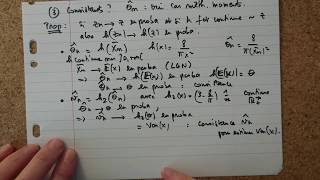 ③ Consistents ? θ̂m : oui car méth. moments.
Prop : si Zn → Z en proba et si h est continue en Z
alors h(Zn) → h(Z) en proba
• θ̂n = h(X̄n) h(x) = 8/πx² θ̂n = 8/π(X̄n)²
h continue sur ]0,+∞[
X̄n → E(X) en proba (LGN)
⇒ θ̂n → h(E(X)) en proba h(E(X)) = θ
⇒ θ̂n → θ en proba : consistance
• N̂n = h₂(θ̂n) avec h₂(x) = (2 - π/2) 1/x continue
θ̂n → θ en proba
⇒ N̂n → h₂(θ) en proba
= Var(X) : consistance N̂n
pour estimer Var(X).